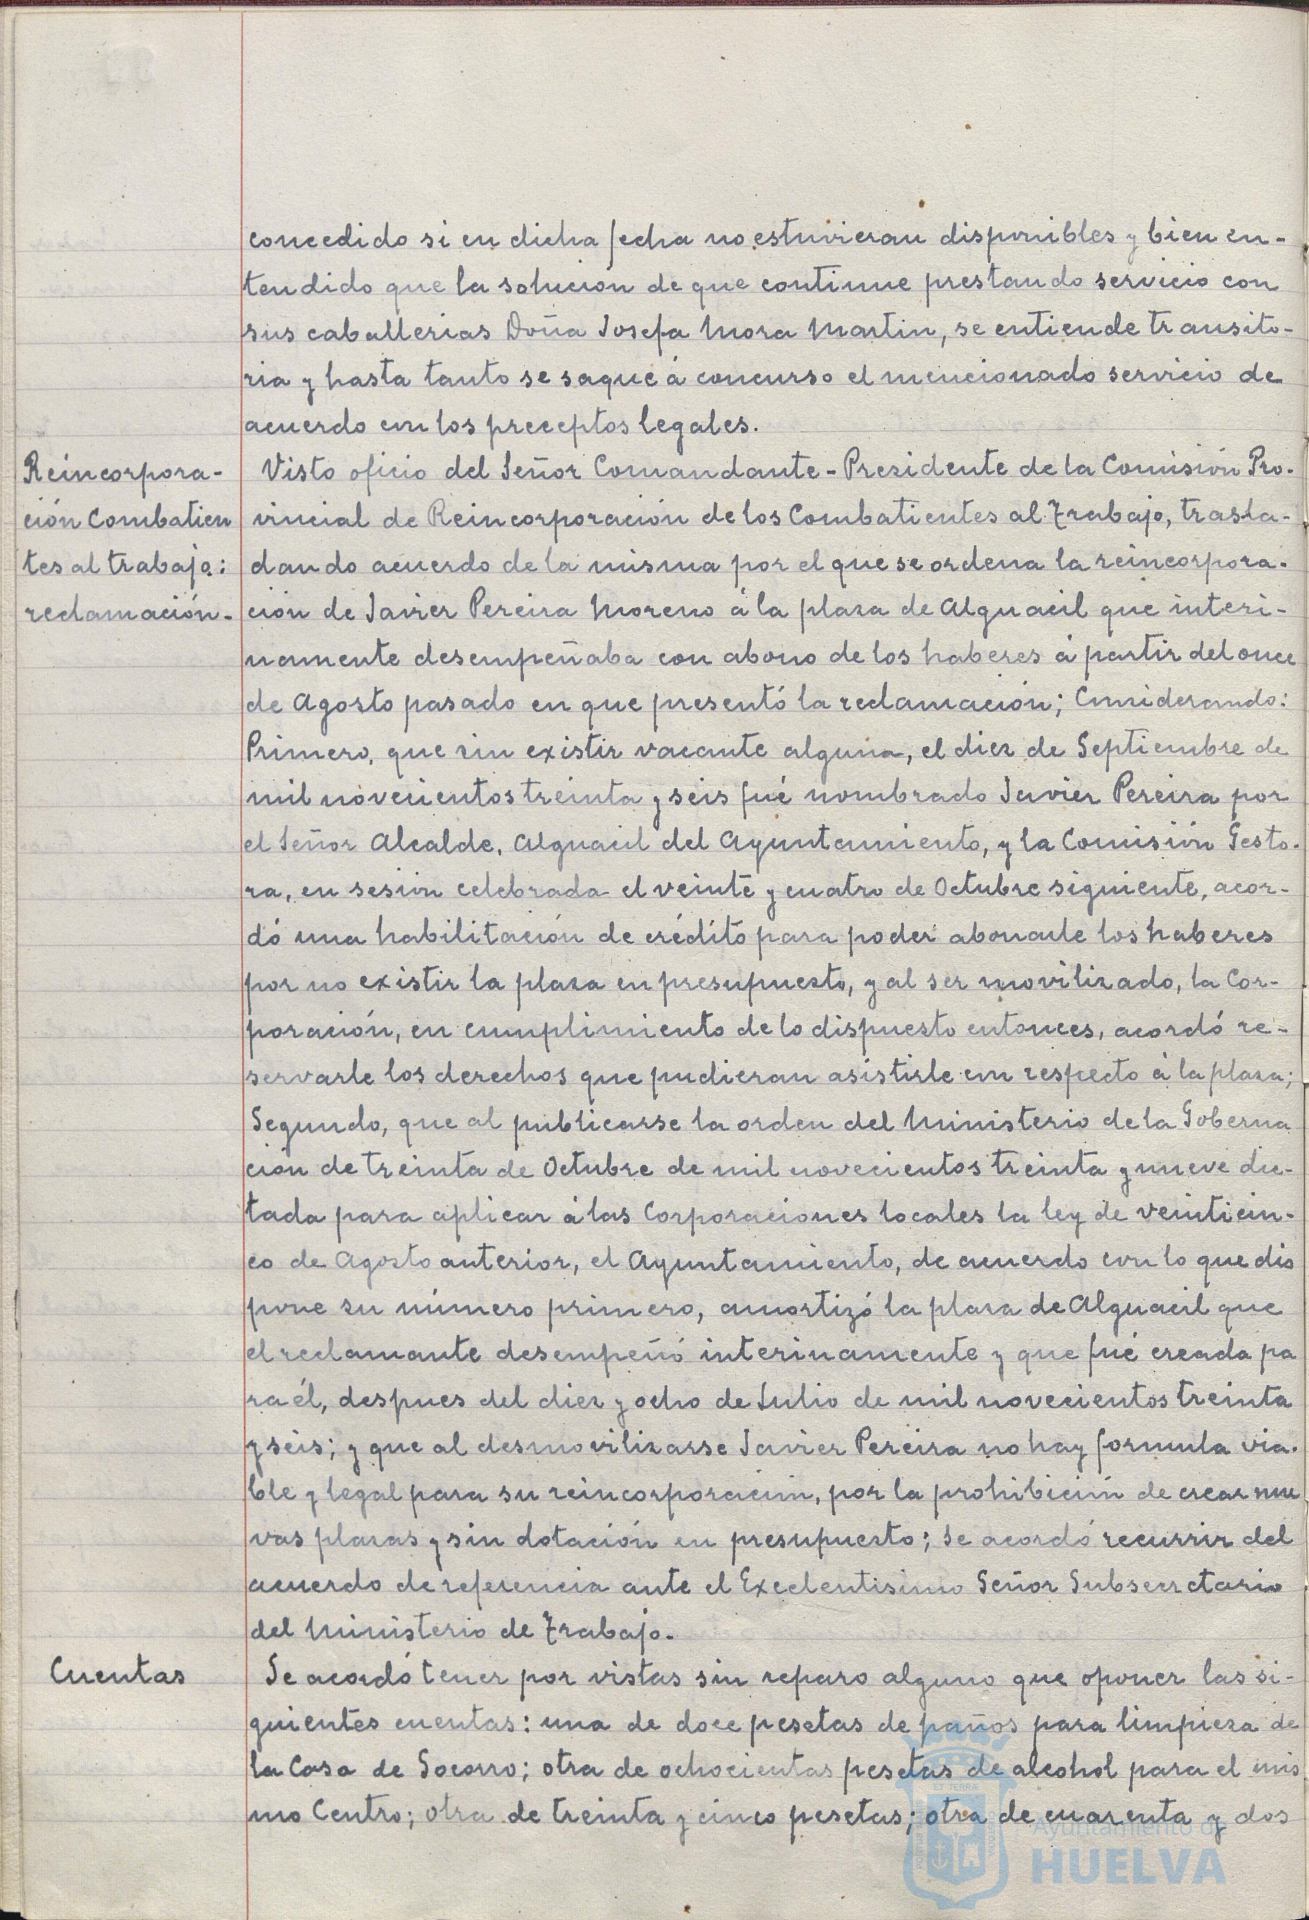 concedido si en dicha fecha no estuvieran disponibles y bien en-
tendido que la solución de que continue prestando servicio con
sus caballerias Doña Josefa Mora Martin, se entiende transito-
ria y hasta tanto se saque á concurso el mencionado servicio de
acuerdo con los preceptos legales.
Reincorpora-
ción Combatien
tes al trabajo:
reclamación-
Visto oficio del Señor Comandante-Presidente de la Comisión Pro-
vincial de Reincorporación de los Combatientes al Trabajo, trasla-
dando acuerdo de la misma por el que se ordena la reincorpora-
ción de Javier Pereira Moreno á la plaza de Alguacil que interi-
namente desempeñaba con abono de los haberes á partir del once
de Agosto pasado en que presentó la reclamación; Considerando:
Primero, que sin existir vacante alguna, el diez de Septiembre de
mil novecientos treinta y seis fué nombrado Javier Pereira por
el Señor Alcalde, Alguacil del Ayuntamiento, y la Comisión Gesto-
ra, en sesión celebrada el veinte y cuatro de Octubre siguiente, acor-
dó una habilitación de crédito para poder abonarle los haberes
por no existir la plaza en presupuesto, y al ser movilizado, la Cor-
poración, en cumplimiento de lo dispuesto entonces, acordó re-
servarle los derechos que pudieran asistirle con respecto á la plaza;
Segundo, que al publicarse la orden del Ministerio de la Goberna
ción de treinta de Octubre de mil novecientos treinta y nueve dic-
tada para aplicar á las Corporaciones locales la ley de veinticin-
co de Agosto anterior, el Ayuntamiento, de acuerdo con lo que dis
pone su número primero, amortizó la plaza de Alguacil que
el reclamante desempeñó interinamente y que fué creada pa
ra él, despues del diez y ocho de Julio de mil novecientos treinta
y seis; y que al desmovilizarse Javier Pereira no hay formula via-
ble y legal para su reincorporación, por la prohibición de crear nue
vas plazas y sin dotación en presupuesto; Se acordó recurrir del
acuerdo de referencia ante el Excelentisimo Señor Subsecretario
del Ministerio de Trabajo.
Cuentas
Se acordó tener por vistas sin reparo alguno que oponer las si-
guientes cuentas: una de doce pesetas de paños para limpieza de
la Casa de Socorro; otra de ochocientas pesetas de alcohol para el mis
mo Centro; otra de treinta y cinco pesetas; otra de cuarenta y dos
Ayuntamiento de
HUELVA